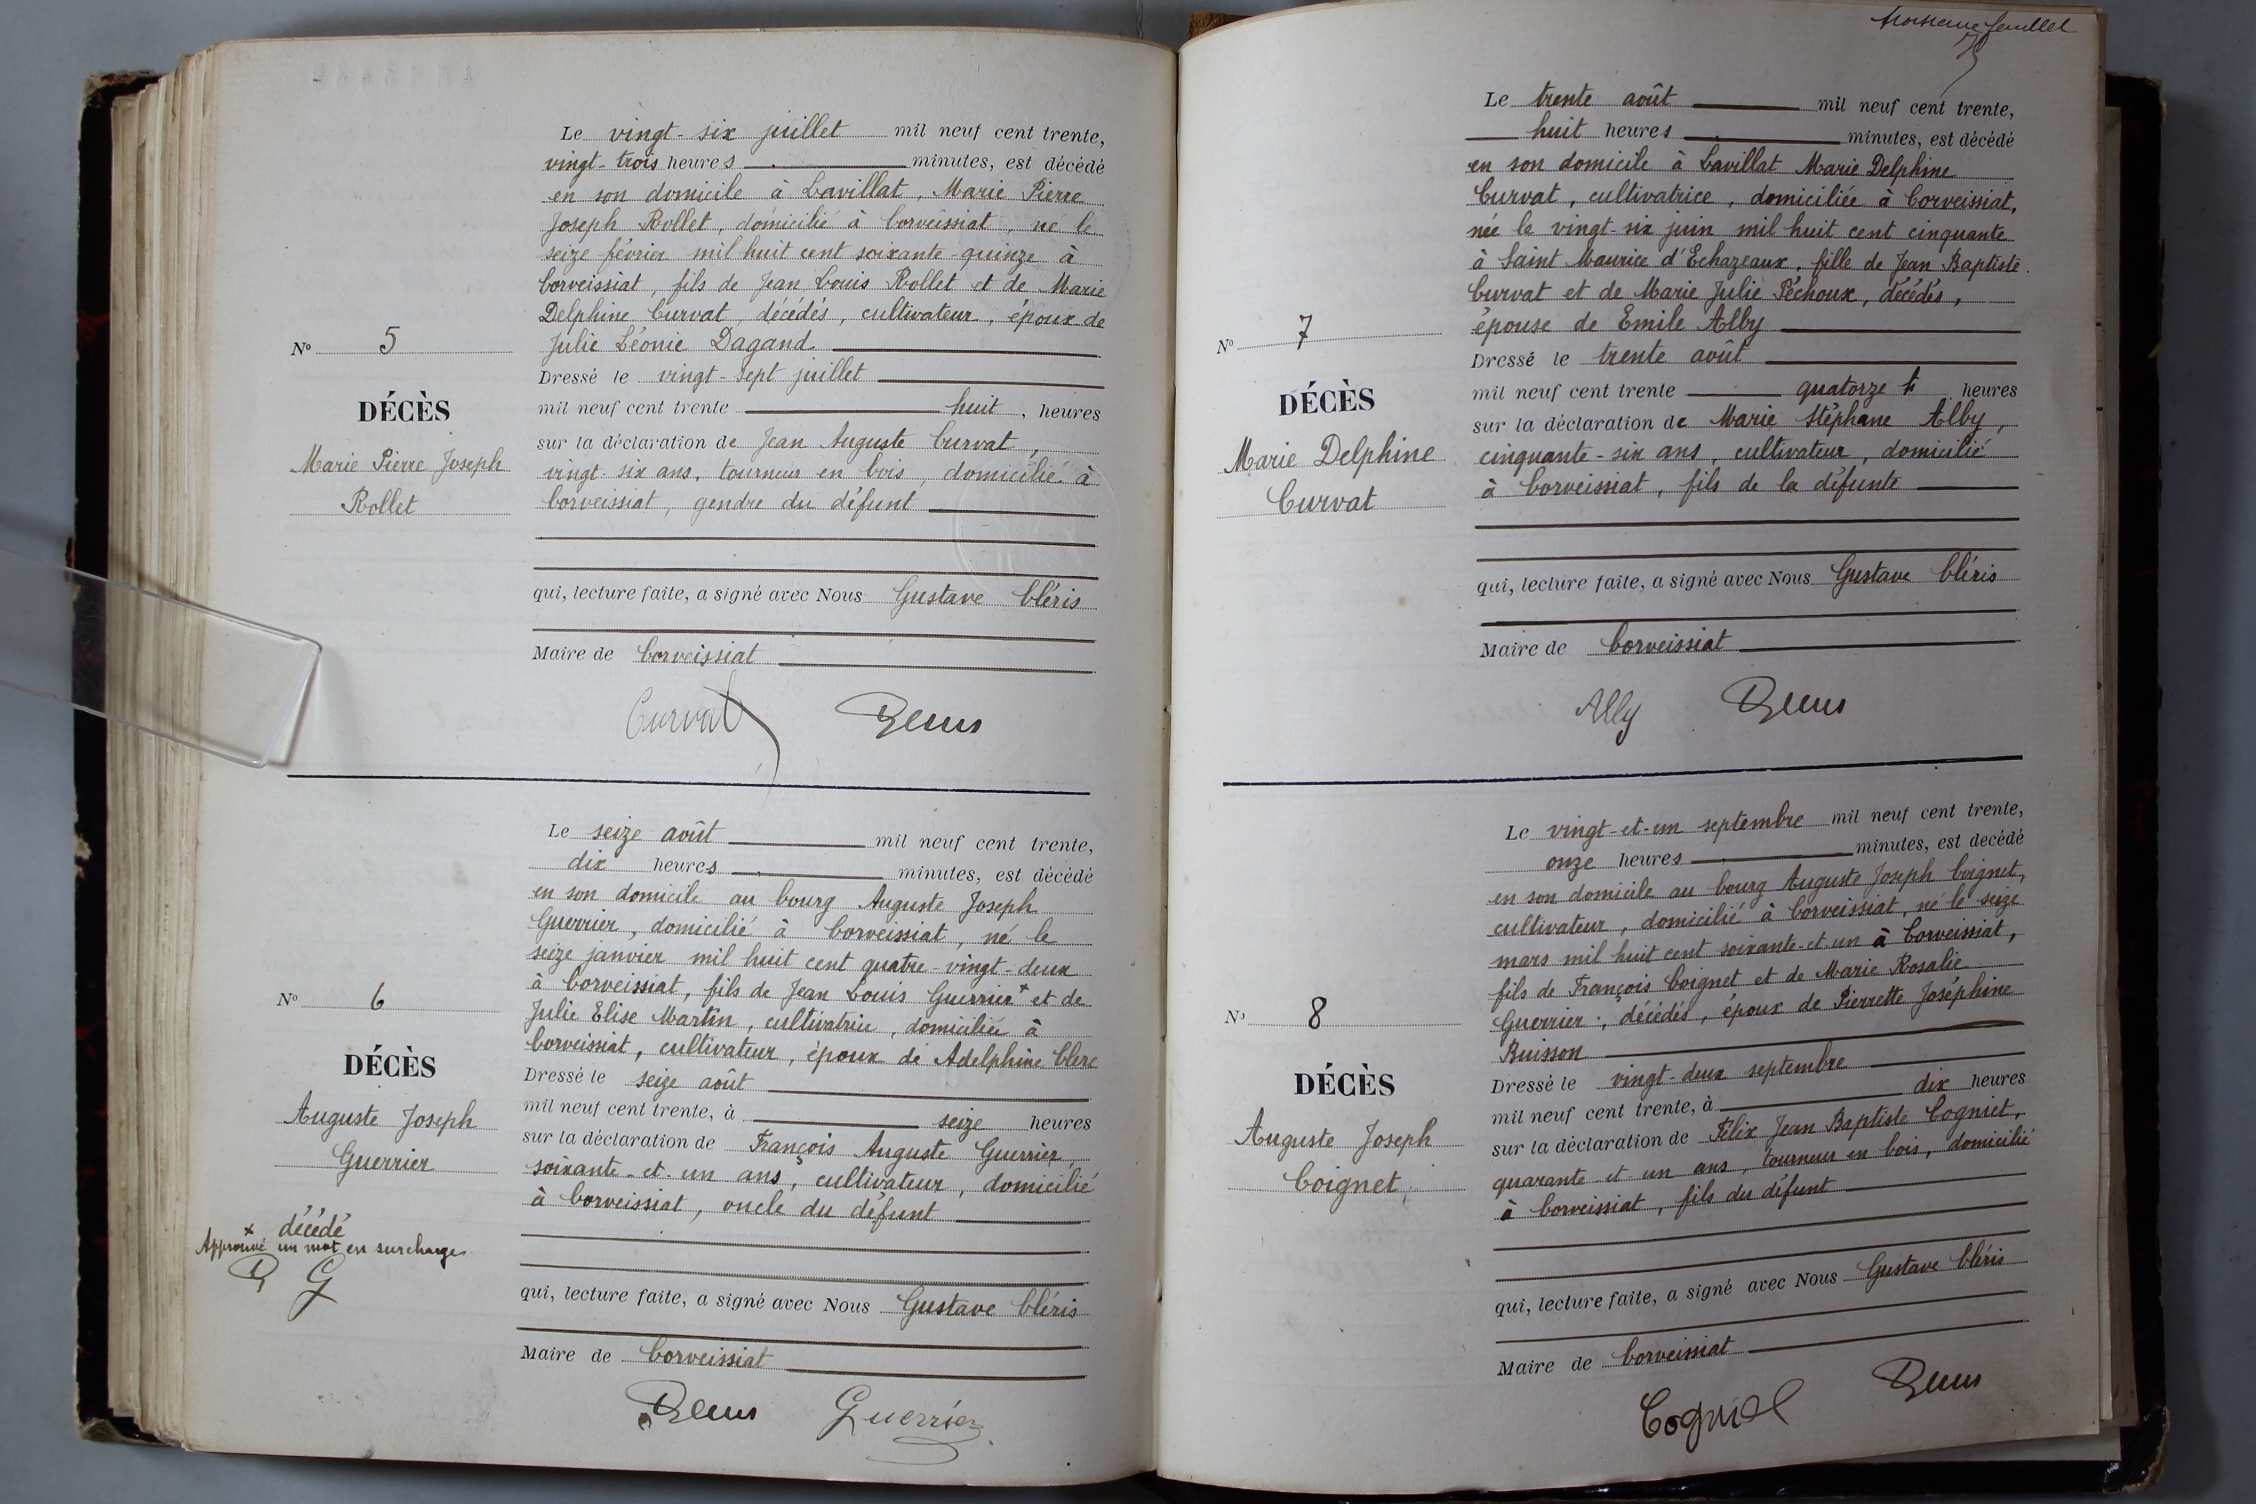 Le vingt-six juillet mil neuf cent trente,
vingt-trois heures minutes, est décédé
en son domicile à Lavillat, Marie Pierre
Joseph Rollet, domicilié à Corveissiat, né le
seize février mil huit cent soixante-quinze à
Corveissiat, fils de Jean Louis Rollet et de Marie
Delphine Curvat, décédés, cultivateur, époux de
Julie Léonie Dagand.
Dressé le vingt-sept juillet
mil neuf cent trente huit, heures
sur la déclaration de Jean Auguste Curvat,
vingt-six ans, tourneur en bois, domicilié à
Corveissiat, gendre du défunt
qui, lecture faite, a signé avec Nous Gustave Cléris
Maire de Corveissiat
Curvat
N° 5
DÉCÈS
Marie Pierre Joseph
Rollet
Le seize août mil neuf cent trente,
dix heures minutes, est décédé
en son domicile au bourg Auguste Joseph
Guerrier, domicilié à Corveissiat, né le
seize janvier mil huit cent quatre-vingt-deux
à Corveissiat, fils de Jean Louis Guerrier + et de
Julie Elise Martin, cultivatrice, domiciliée à
Corveissiat, cultivateur, époux de Adelphine Clerc
Dressé le seize août
mil neuf cent trente, à seize heures
sur la déclaration de François Auguste Guerrier,
soixante-et-un ans, cultivateur, domicilié
à Corveissiat, oncle du défunt
qui, lecture faite, a signé avec Nous Gustave Cléris
Maire de Corveissiat
Guerrier
N° 6
DÉCÈS
Auguste Joseph
Guerrier
+ décédé
Approuvé un mot en surcharge
G
troisième feuillet
Le trente août mil neuf cent trente,
huit heures minutes, est décédé
en son domicile à Lavillat Marie Delphine
Curvat, cultivatrice, domiciliée à Corveissiat,
née le vingt-six juin mil huit cent cinquante
à Saint Maurice d'Echazeaux, fille de Jean Baptiste
Curvat et de Marie Julie Péchoux, décédés,
épouse de Emile Alby
Dressé le trente août
mil neuf cent trente quatorze heures
sur la déclaration de Marie Stéphane Alby,
cinquante-six ans, cultivateur, domicilié
à Corveissiat, fils de la défunte
qui, lecture faite, a signé avec Nous Gustave Cléris
Maire de Corveissiat
Alby
N° 7
DÉCÈS
Marie Delphine
Curvat
Le vingt-et-un septembre mil neuf cent trente,
onze heures minutes, est décédé
en son domicile au bourg Auguste Joseph Coignet,
cultivateur, domicilié à Corveissiat, né le seize
mars mil huit cent soixante-et-un à Corveissiat,
fils de François Coignet et de Marie Rosalie
Guerrier, décédés, époux de Pierrette Joséphine
Buisson
Dressé le vingt-deux septembre
mil neuf cent trente, à dix heures
sur la déclaration de Félix Jean Baptiste Cogniet,
quarante et un ans, tourneur en bois, domicilié
à Corveissiat, fils du défunt
qui, lecture faite, a signé avec Nous Gustave Cléris
Maire de Corveissiat
Cogniet
N° 8
DÉCÈS
Auguste Joseph
Coignet